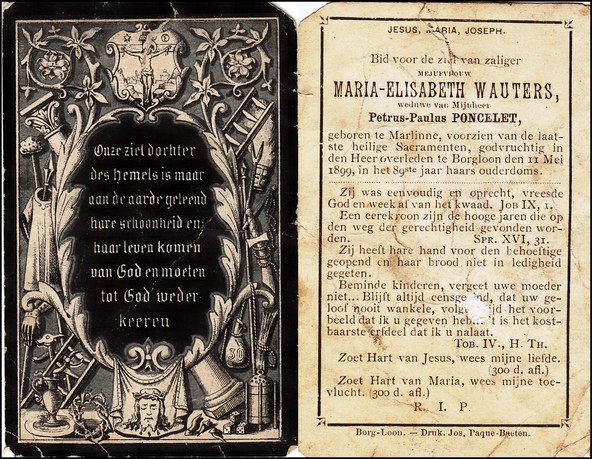 Onze ziel dochter
des hemels is maar
aan de aarde geleend
hare schoonheid en
haar leven komen
van God en moeten
tot God weder
keeren
30
JESUS, MARIA, JOSEPH.
Bid voor de ziel van zaliger
MEJUFVROUW
MARIA-ELISABETH WAUTERS,
weduwe van Mijnheer
Petrus-Paulus PONCELET,
geboren te Marlinne, voorzien van de laat-
ste heilige Sacramenten, godvruchtig in
den Heer overleden te Borgloon den 11 Mei
1899, in het 89ste jaar haars ouderdoms.
Zij was eenvoudig en oprecht, vreesde
God en week af van het kwaad. JOB IX, 1.
Een eerekroon zijn de hooge jaren die op
den weg der gerechtigheid gevonden wor-
den. SPR. XVI, 31.
Zij heeft hare hand voor den behoeftige
geopend en haar brood niet in ledigheid
gegeten.
Beminde kinderen, vergeet uwe moeder
niet... Blijft altijd eensgezind, dat uw ge-
loof nooit wankele, volgt altijd het voor-
beeld dat ik u gegeven heb... 't is het kost-
baarste erfdeel dat ik u nalaat.
TOB. IV., H. TH.
Zoet Hart van Jesus, wees mijne liefde.
(300 d. afl.)
Zoet Hart van Maria, wees mijne toe-
vlucht. (300 d. afl.)
R. I. P.
Borg-Loon. — Druk. Jos. Paque-Baeten.